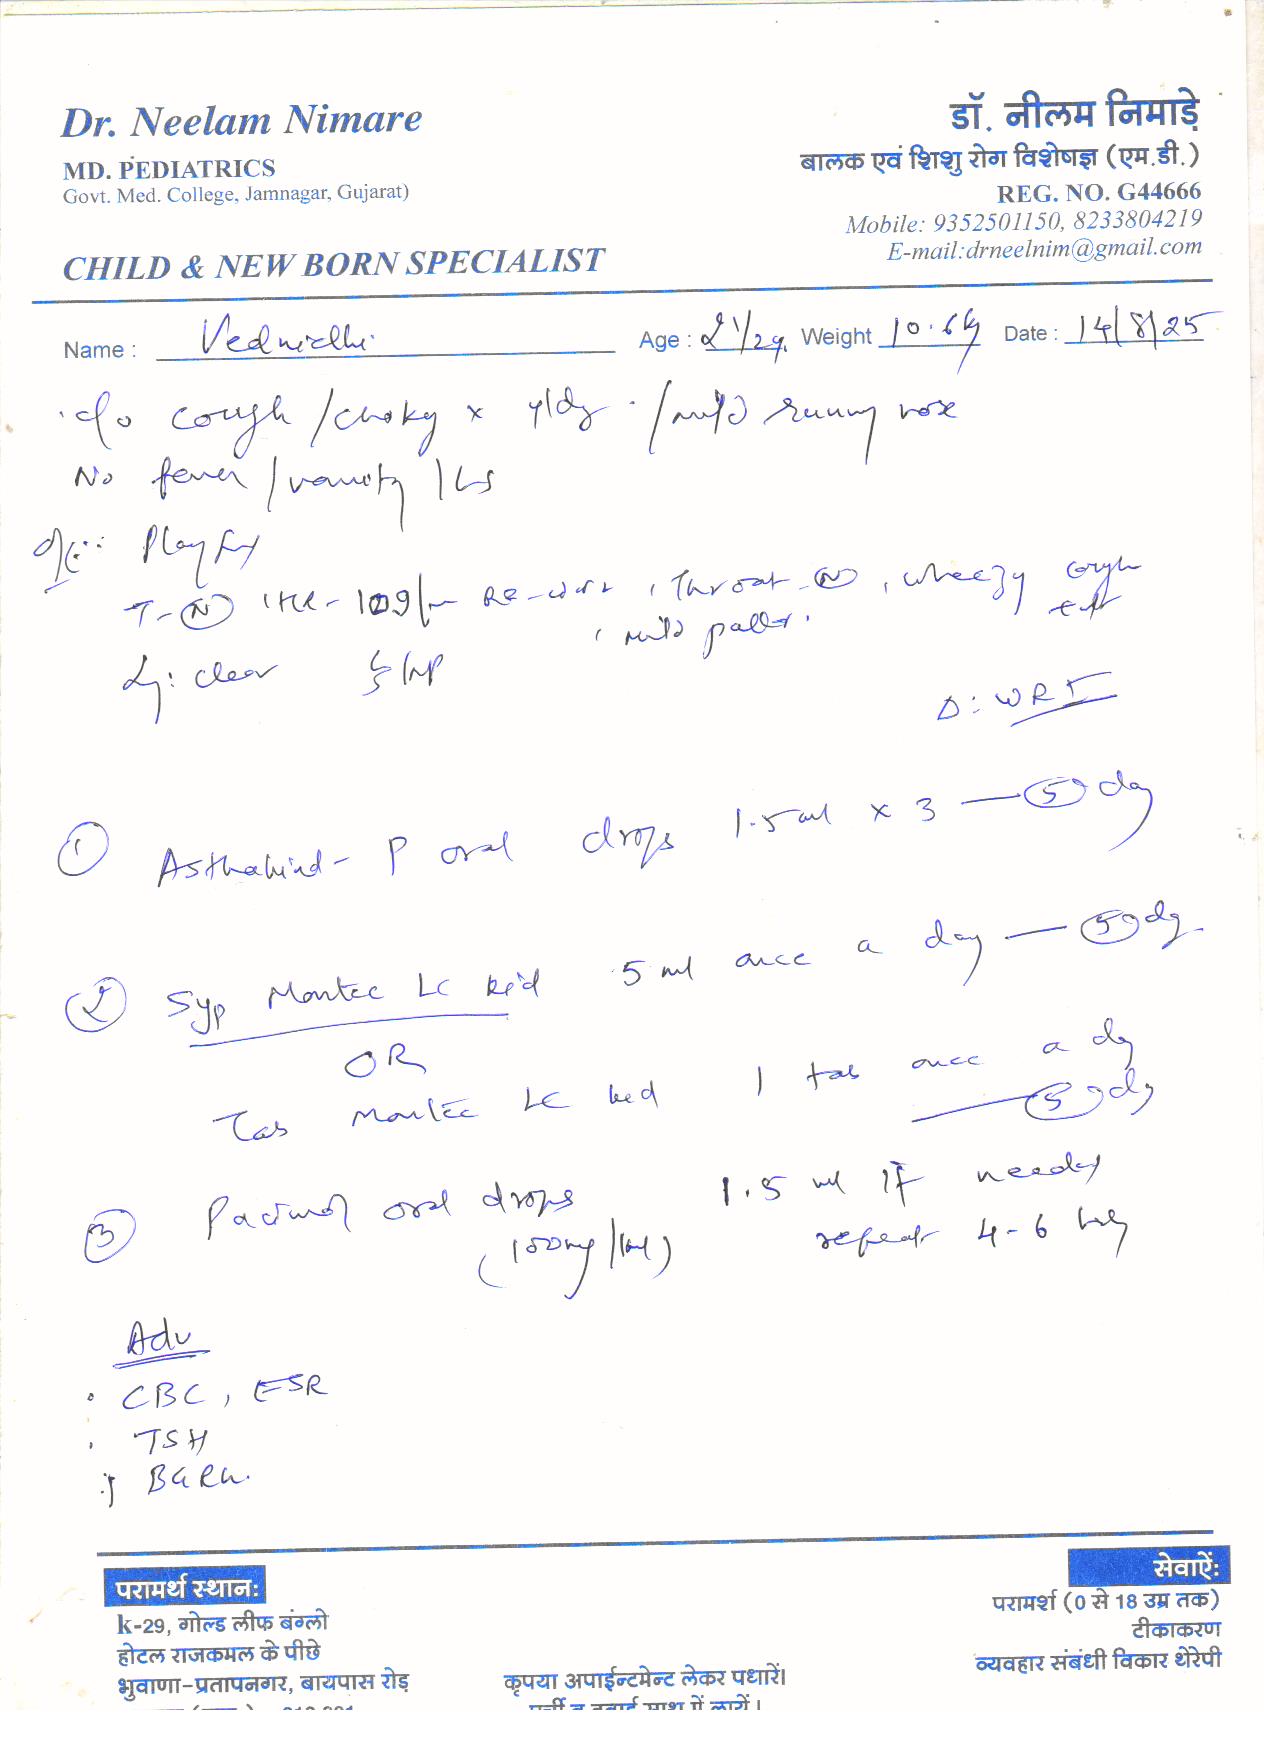 Dr. Neelam Nimare
MD. PEDIATRICS
Govt. Med. College, Jamnagar, Gujarat)
CHILD & NEW BORN SPECIALIST
डॉ. नीलम निमाड़े
बालक एवं शिशु रोग विशेषज्ञ (एम.डी.)
REG. NO. G44666
Mobile: 9352501150, 8233804219
E-mail:drneelnim@gmail.com
Name : Vednidhi Age : 2 1/2y Weight 10.6kg Date : 14/8/25
c/o cough / choky x / mild runny nose
No fever / vomity / LS
o/e: Playful
T-(N) , HR - 109/m RR - , Throat - (N) , wheezy cough
, mild pallor.
clear
D: WRI
① Asthakind - P oral drops 1.5ml x 3 — 5 day
② Syp Montec LC kid 5 ml once a day — 5 dy
OR
Tab Montec LC kid 1 tab once a dy
— 5 dy
③ Pacimol oral drops 1.5 ml if needed
(100mg/1ml) repeat 4-6 hrly
Adv
• CBC, ESR
• TSH
परामर्थ स्थान:
k-29, गोल्ड लीफ बंग्लो
होटल राजकमल के पीछे
भुवाणा-प्रतापनगर, बायपास रोड़
कृपया अपाईन्टमेन्ट लेकर पधारें।
सेवाऐं:
परामर्श (0 से 18 उम्र तक)
टीकाकरण
व्यवहार संबंधी विकार थेरेपी